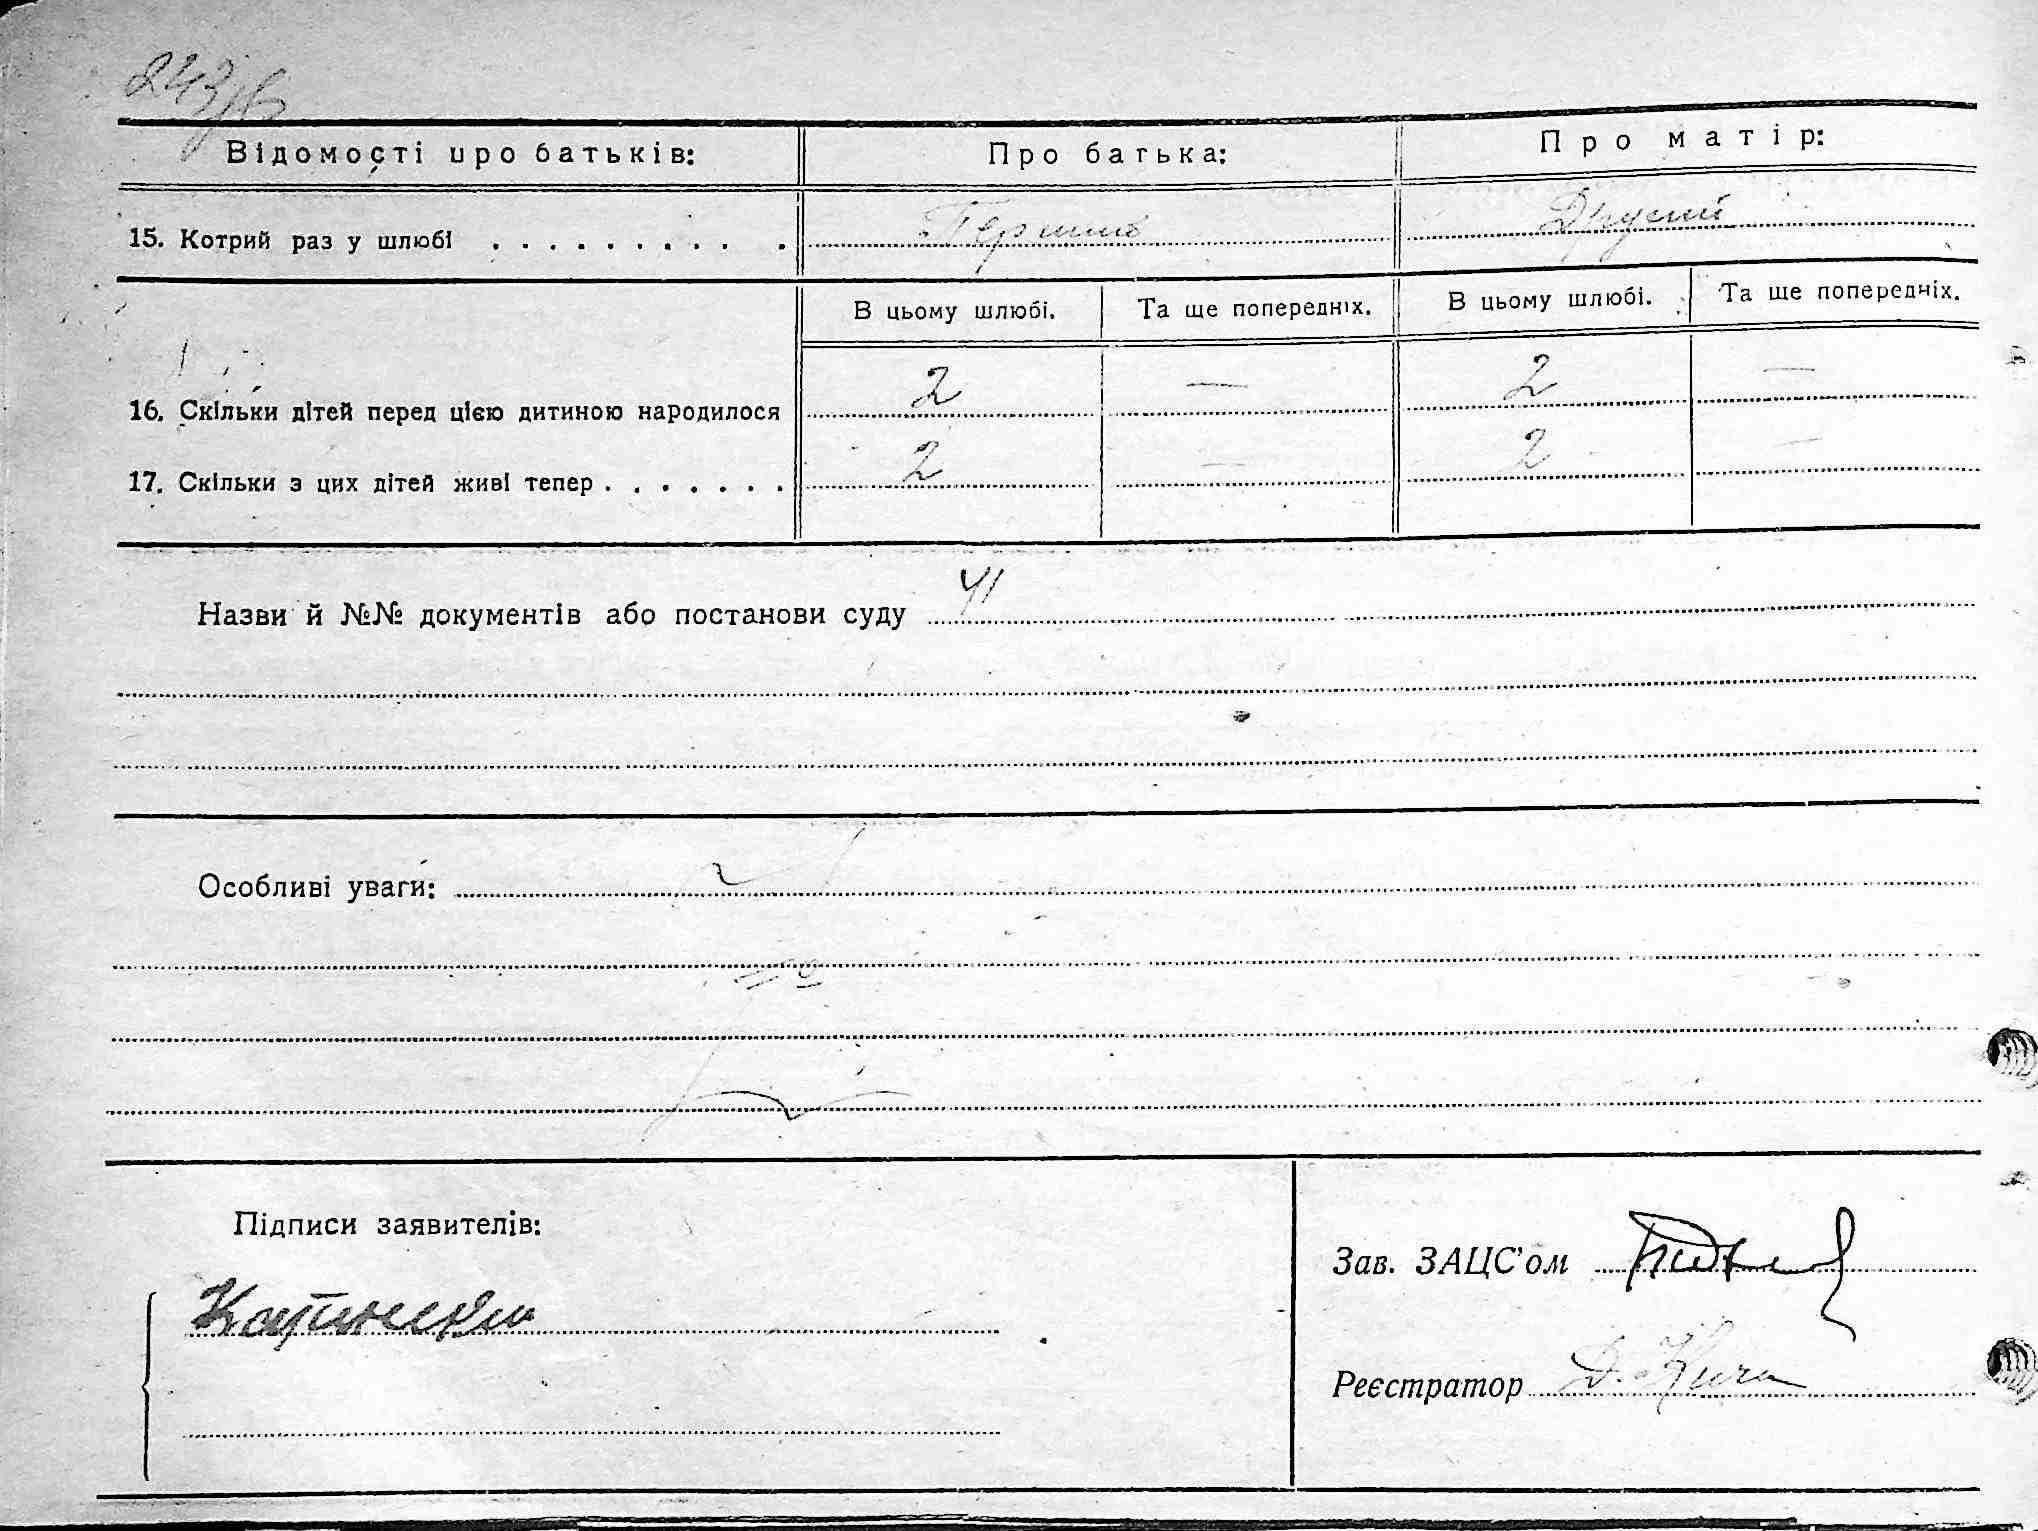 243/в
Відомості про батьків: Про батька: Про матір:
15. Котрий раз у шлюбі . . . . . . . . . . Другий
В цьому шлюбі. Та ще попередніх. В цьому шлюбі. Та ще попередніх.
16. Скільки дітей перед цією дитиною народилося 2 — 2 —
17. Скільки з цих дітей живі тепер . . . . . . . 2 — 2 —
Назви й №№ документів або постанови суду
Особливі уваги:
Підписи заявителів:
Зав. ЗАЦС'ом
Реєстратор